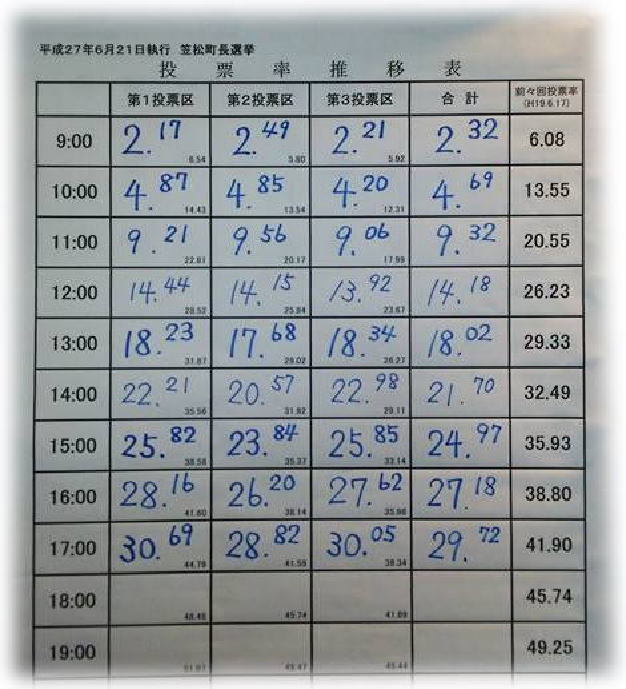 平成27年6月21日執行 笠松町長選挙
投票率推移表
第1投票区 第2投票区 第3投票区 合計 前々回投票率
(H19.6.17)
9:00 2.17 2.49 2.21 2.32 6.08
6.54 5.80 5.92
10:00 4.87 4.85 4.20 4.69 13.55
14.43 13.54 12.31
11:00 9.21 9.56 9.06 9.32 20.55
22.81 20.17 17.99
12:00 14.44 14.15 13.92 14.18 26.23
28.52 25.84 23.67
13:00 18.23 17.68 18.34 18.02 29.33
31.87 29.02 26.27
14:00 22.21 20.57 22.98 21.70 32.49
35.56 31.82 29.11
15:00 25.82 23.84 25.85 24.97 35.93
38.58 35.37 33.14
16:00 28.16 26.20 27.62 27.18 38.80
41.80 38.14 35.98
17:00 30.69 28.82 30.05 29.72 41.90
44.79 41.55 38.34
18:00 45.74
48.46 45.74 41.89
19:00 49.25
49.47 45.44